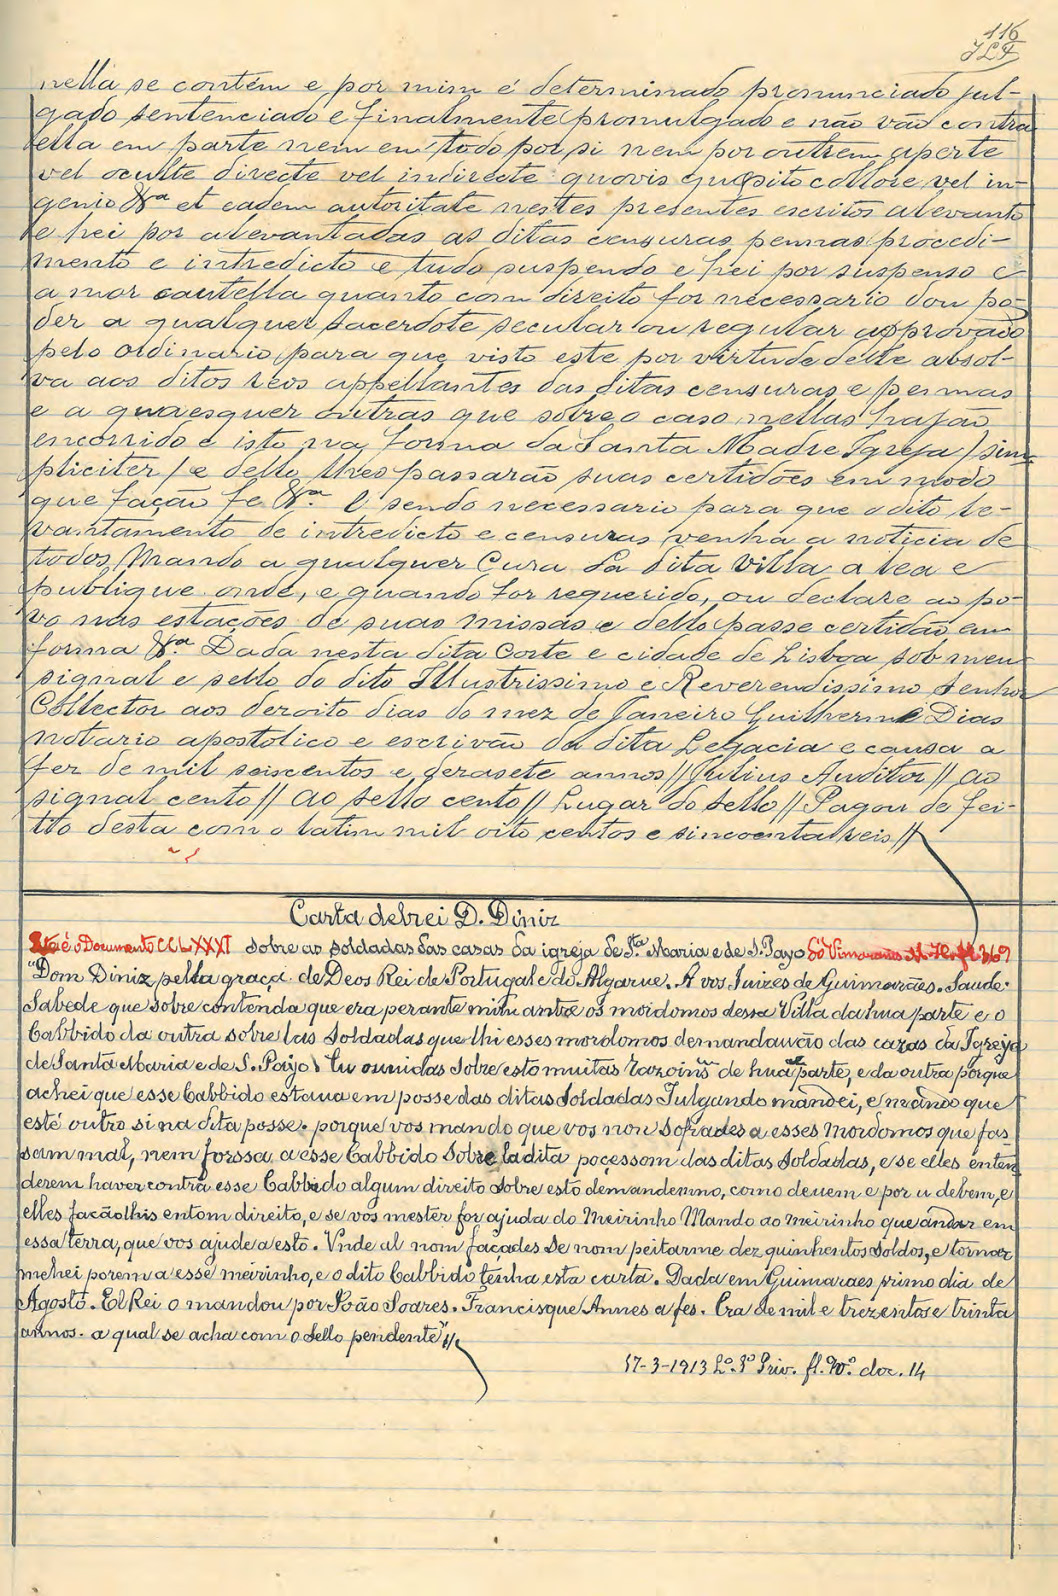 116
nella se contém e por mim é determinado pronunciado jul-
gado sentenciado e finalmente promulgado e não vão contra
ella em parte nem em todo por si nem por outrem aperte
vel oculte directe vel indirecte quovis quæsito collore vel in-
genio &ª et eadem autoritate nestes presentes escritos alevanto
e hei por alevantadas as ditas censuras pennas procedi-
mento e intredicto e tudo suspendo e hei por suspenso e
a mor cautella quanto com direito for necessario dou po-
der a qualquer sacerdote secular ou regular approvado
pelo ordinario para que visto este por virtude delle absol-
va aos ditos reos appellantes das ditas censuras e pennas
e a quaesquer outras que sobre o caso nellas hajão
encorrido e isto na forma da Santa Madre Igreja / sim-
pliciter / e dello lhes passarão suas certidões em modo
que fação fe &ª. E sendo necessario para que o dito le-
vantamento de intredicto e censuras venha a noticia de
todos Mando a qualquer Cura da dita Villa a lea e
publique onde, e quando for requerido, ou declare ao po-
vo nas estações de suas missas e dello passe certidão em
forma &ª. Dada nesta dita Corte e cidade de Lisboa sob meu
signal e sello do dito Illustrissimo e Reverendissimo Senhor
Collector aos deroito dias do mez de Janeiro Guilherme Dias
notario apostolico e escrivão da dita Legacia e causa a
fer de mil seiscentos e derasete annos // Julius Auditor // ao
signal cento // ao sello cento // Lugar do sello // Pagou de fei-
tio desta com o latim mil oito centos e sincoenta reis //
Carta delrei D. Diniz
Este é o Documento CCLXXXI sobre as soldadas das casas da igreja de Sta Maria e de S. Payo
"Dom Diniz pella graça de Deos Rei de Portugal e do Algarue. A vos Juizes de Guimarães. Saude.
Sabede que sobre contenda que era perante mim antre os moidomos dessa Villa da hua parte e o
Cabbido da outra sobre las Soldadas que lhi esses mordomos demandauão das cazas da Igreya
de Santa Maria e de S. Payo. Eu ouuidas sobre esto muitas razoins de hua parte, e da outra porque
achei que esse Cabbido estaua em posse das ditas Soldadas Julgando mandei, e mando que
esté outro si na dita posse. porque vos mando que vos non sofrades a esses Mordomos que fas-
sam mal, nem forssa a esse Cabbido sobre la dita poçessom das ditas Soldadas, e se elles enten
derem haver contra esse Cabbido algum direito sobre esto demandemno, como deuem e por u debem, e
elles facãolhis entom direito, e se vos mester for ajuda do Meirinho Mando ao meirinho que andar em
essa terra, que vos ajude a esto. Vnde al nom façades se nom peitarme dez quinhentos soldos, e tornar
mehei porem a esse meirinho, e o dito Cabbido tenha esta carta. Dada em Guimaraes primo dia de
Agosto. El Rei o mandou por João Soares. Francisque Annes a fes. Era de mil e trezentos e trinta
annos. a qual se acha com o sello pendente" //
17-3-1913 Lº. 1º Priv. fl. doc. 14